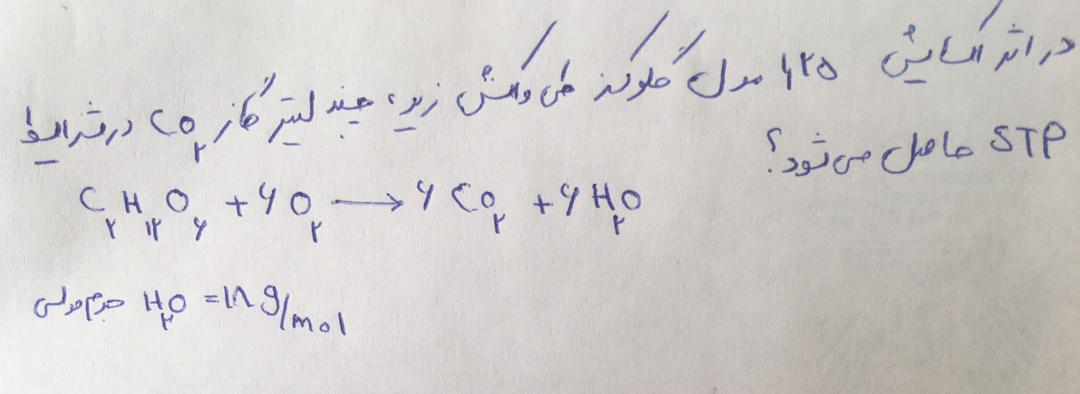 در اثر اکسایش ۱۲۵ مول گلوکز طی واکنش زیر، چند لیتر گاز CO۲ در شرایط
STP حاصل می‌شود؟
C۲H۱۲O۶ + ۶O۲ → ۶CO۲ + ۶H۲O
جرم مولی H۲O = ۱۸ g/mol